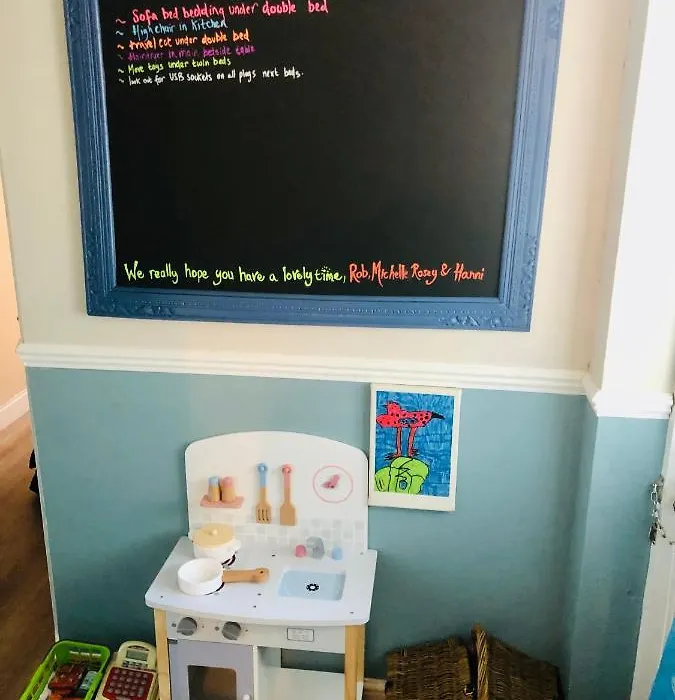 ~ Sofa bed bedding under double bed
~ Highchair in kitchen
~ travel cot under double bed
~ Hairdryer in main bedside table
~ More toys under twin beds
~ look out for USB sockets on all plugs next beds.
We really hope you have a lovely time, Rob, Michelle Rosey & Hanni